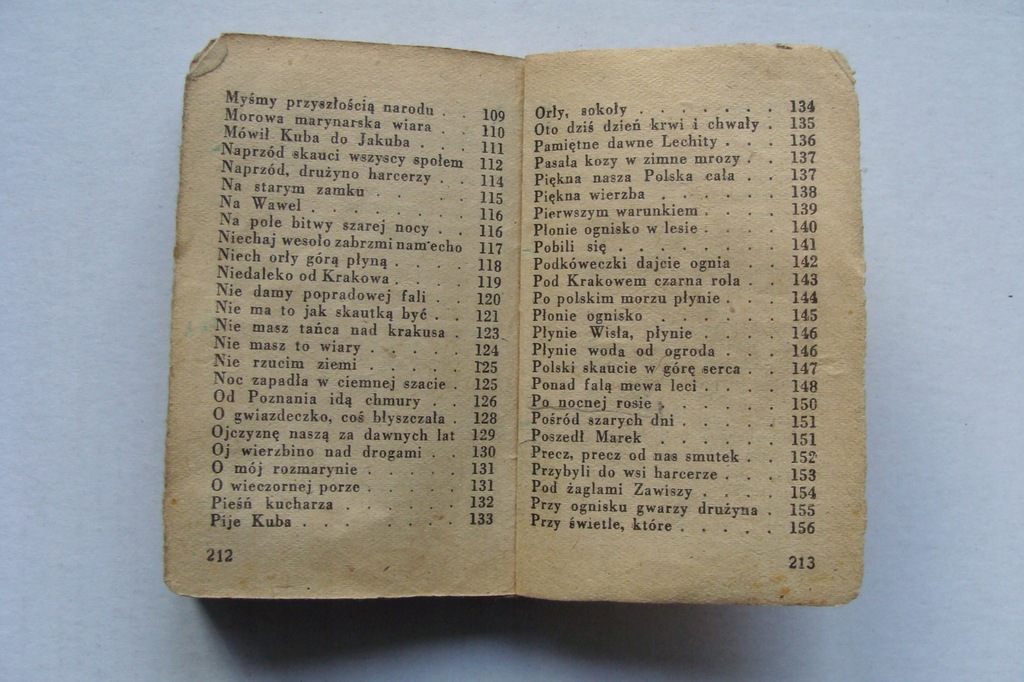 Myśmy przyszłością narodu . . 109
Morowa marynarska wiara . . 110
Mówił Kuba do Jakuba . . . 111
Naprzód skauci wszyscy społem 112
Naprzód, drużyno harcerzy . . 114
Na starym zamku . . . . 115
Na Wawel . . . . . . . 116
Na pole bitwy szarej nocy . . 116
Niechaj wesoło zabrzmi nam echo 117
Niech orły górą płyną . . . . 118
Niedaleko od Krakowa . . . . 119
Nie damy popradowej fali . . 120
Nie ma to jak skautką być . . 121
Nie masz tańca nad krakusa . 123
Nie masz to wiary . . . . . 124
Nie rzucim ziemi . . . . . 125
Noc zapadła w ciemnej szacie . 125
Od Poznania idą chmury . . 126
O gwiazdeczko, coś błyszczała . 128
Ojczyznę naszą za dawnych lat 129
Oj wierzbino nad drogami . . 130
O mój rozmarynie . . . . . 131
O wieczornej porze . . . . . 131
Pieśń kucharza . . . . . . 132
Pije Kuba . . . . . . . . 133
212
Orły, sokoły . . . . . . . 134
Oto dziś dzień krwi i chwały . 135
Pamiętne dawne Lechity . . . 136
Pasała kozy w zimne mrozy . . 137
Piękna nasza Polska cała . . 137
Piękna wierzba . . . . . . 138
Pierwszym warunkiem . . . . 139
Płonie ognisko w lesie . . . . 140
Pobili się . . . . . . . . 141
Podkóweczki dajcie ognia . . 142
Pod Krakowem czarna rola . . 143
Po polskim morzu płynie . . . 144
Płonie ognisko . . . . . . 145
Płynie Wisła, płynie . . . . 146
Płynie woda od ogroda . . . 146
Polski skaucie w górę serca . . 147
Ponad falą mewa leci . . . . 148
Po nocnej rosie . . . . . . 150
Pośród szarych dni . . . . . 151
Poszedł Marek . . . . . . 151
Precz, precz od nas smutek . . 152
Przybyli do wsi harcerze . . . 153
Pod żaglami Zawiszy . . . . 154
Przy ognisku gwarzy drużyna . 155
Przy świetle, które . . . . . 156
213